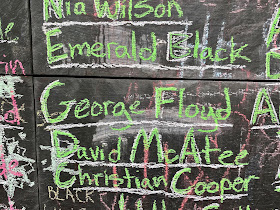 Nia Wilson
Emerald Black
George Floyd
David McAtee
Christian Cooper
BLACK